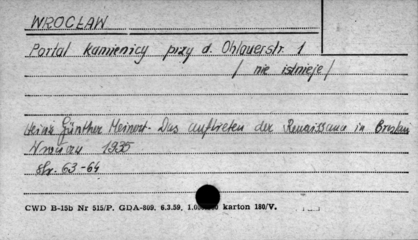 WROCŁAW
Portal kamienicy przy d. Ohlauerstr. 1
/ nie istnieje /
Günther Meinert. Das auftreten der Renaissance in Breslau
1935
Str. 63-64
CWD B-15b Nr 515/P. GDA-809. 6.3.59. karton 180/V.